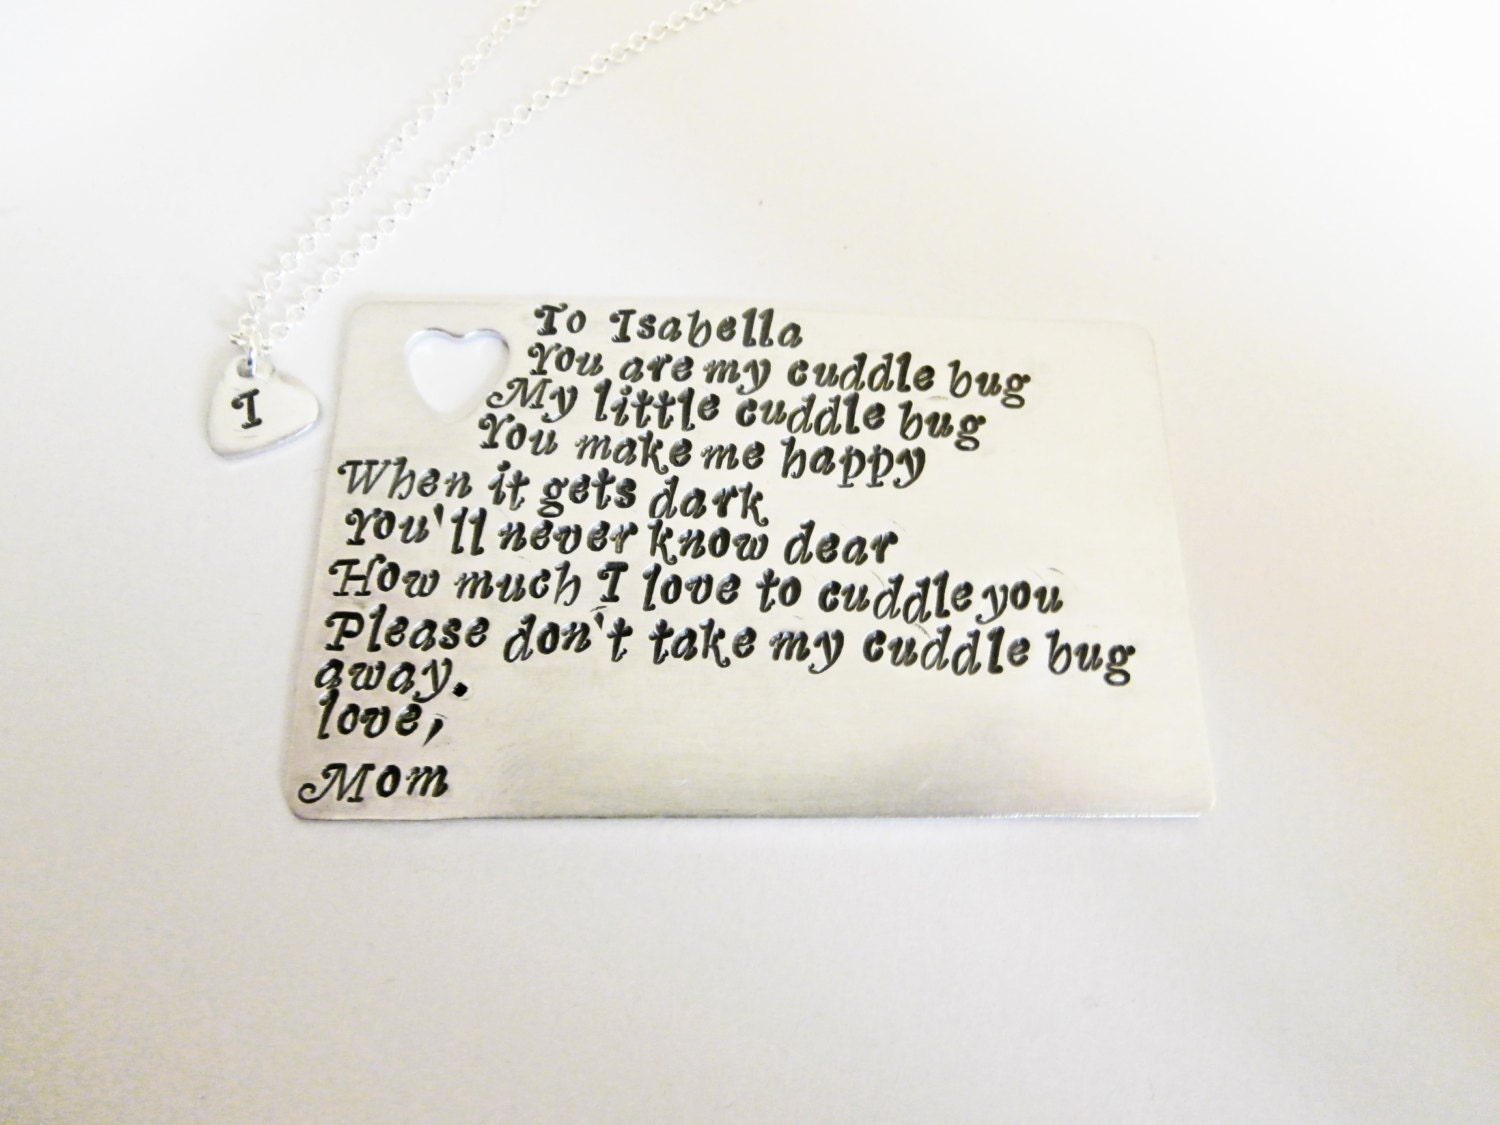 I
To Isabella
You are my cuddle bug
My little cuddle bug
You make me happy
When it gets dark
You'll never know dear
How much I love to cuddle you
Please don't take my cuddle bug
away.
love,
Mom